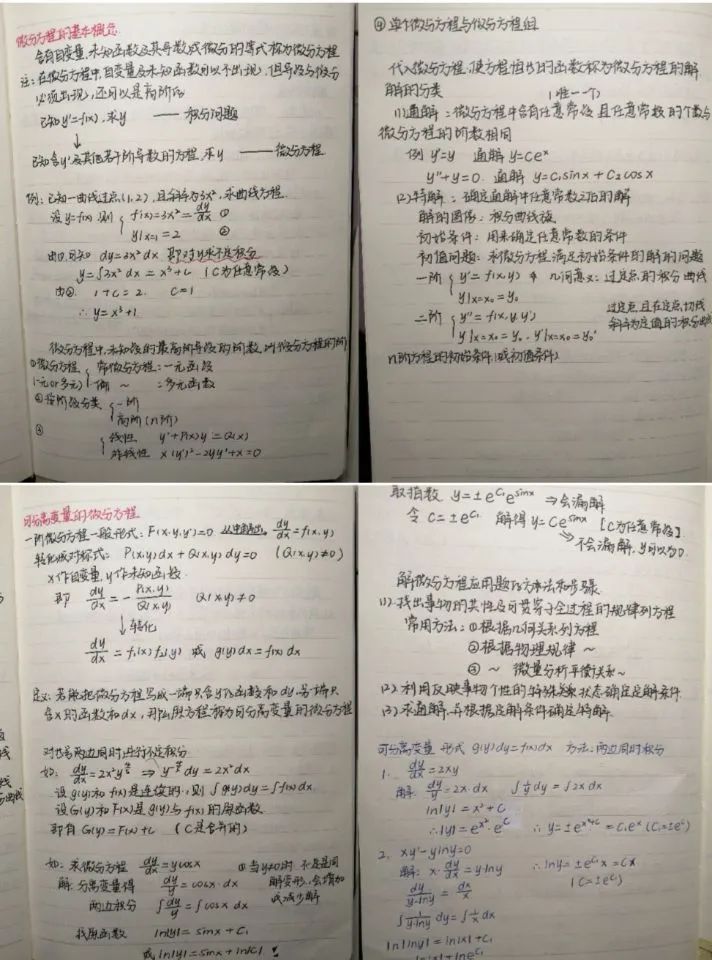 微分方程的基本概念
含有自变量,未知函数及其导数或微分的等式称为微分方程
注:在微分方程中,自变量及未知函数可以不出现,但导数与微分
必须出现,还可以是高阶的
已知y'=f(x),求y —— 积分问题
↓
已知含y'及其他若干阶导数的方程,求y —— 微分方程
例:已知一曲线过点(1,2),且斜率为3x²,求曲线方程.
设y=f(x) 则 { f'(x)=3x²=dy/dx ①
y|x=1=2 ②
由①可知 dy=3x²dx 即对y求不定积分
y=∫3x²dx=x³+C (C为任意常数)
由②. 1+C=2. C=1
∴y=x³+1
微分方程中,未知函数的最高阶导数的阶数,叫微分方程的阶
①微分方程 { 常微分方程:一元函数
(一元or多元) 偏 ~ :多元函数
②按阶数分类 { 一阶
高阶(n阶)
③ { 线性 y'+P(x)y=Q(x)
非线性 x(y')²-2yy'+x=0
④单个微分方程与微分方程组
代入微分方程,使方程恒成的函数称为微分方程的解
解的分类 (唯一一个)
(1)通解:微分方程中含有任意常数且任意常数的个数与
微分方程的阶数相同
例 y'=y 通解 y=Ceˣ
y''+y=0. 通解 y=C₁sinx+C₂cosx
(2)特解:确定通解中任意常数之后的解
解的图像:积分曲线族
初始条件:用来确定任意常数的条件
初值问题:求微分方程满足初始条件的解的问题
一阶 { y'=f(x,y) 几何意义:过定点的积分曲线
y|x=x₀=y₀
二阶 { y''=f(x,y,y') 过定点且在定点切线
y|x=x₀=y₀, y'|x=x₀=y₀' 斜率为定值的积分曲线
n阶方程的初始条件(或初值条件)
可分离变量的微分方程
一阶微分方程一般形式:F(x,y,y')=0 dy/dx=f(x,y)
转化成对称式: P(x,y)dx+Q(x,y)dy=0 (Q(x,y)≠0)
x作自变量,y作未知函数
即 dy/dx=-P(x,y)/Q(x,y) Q(x,y)≠0
↓转化
dy/dx=f₁(x)f₂(y) 或 g(y)dy=f(x)dx
定义:若能把微分方程写成一端只含y的函数和dy,另一端只
含x的函数和dx,那么原方程称为可分离变量的微分方程
对它的两边同时进行不定积分
如: dy/dx=2x²y^(4/5) ⇒ y^(-4/5)dy=2x²dx
设g(y)和f(x)是连续的,则∫g(y)dy=∫f(x)dx
设G(y)和F(x)是g(y)与f(x)的原函数
即有G(y)=F(x)+C (C是合并的)
如:求微分方程 dy/dx=ycosx ①当y≠0时 不是同
解:分离变量得 dy/y=cosx·dx 解变形,会增加
两边积分 ∫dy/y=∫cosx dx 或减少解
找原函数 ln|y|=sinx+C₁
或ln|y|=sinx+ln|C|
取指数 y=±e^(C₁)e^(sinx) ⇒会漏解
令 C=±e^(C₁) 解得y=Ce^(sinx) [C为任意常数]
⇒不会漏解,y可以为0.
解微分方程应用题的方法和步骤
(1).找出事物的共性及可贯穿于全过程的规律列方程
常用方法:①根据几何关系列方程
②根据物理规律~
③ ~ 微量分析平衡关系~
(2).利用反映事物个性的特殊状态确定定解条件
(3).求通解,并根据定解条件确定特解.
可分离变量 形式 g(y)dy=f(x)dx 方法:两边同时积分
1. dy/dx=2xy
解: dy/y=2x·dx ∫1/y dy=∫2xdx
ln|y|=x²+C
∴|y|=e^(x²)·e^C ∴y=±e^(x²+C)=C₁eˣ (C₁=±e^C)
2. xy'-ylny=0
解: x·dy/dx=y·lny ∴lny=±e^(C₁)x=Cx
dy/(y·lny)=dx/x (C=±e^(C₁))
∫1/(y·lny) dy=∫1/x dx
ln|lny|=ln|x|+C₁
=ln|x|+lne^(C₁)